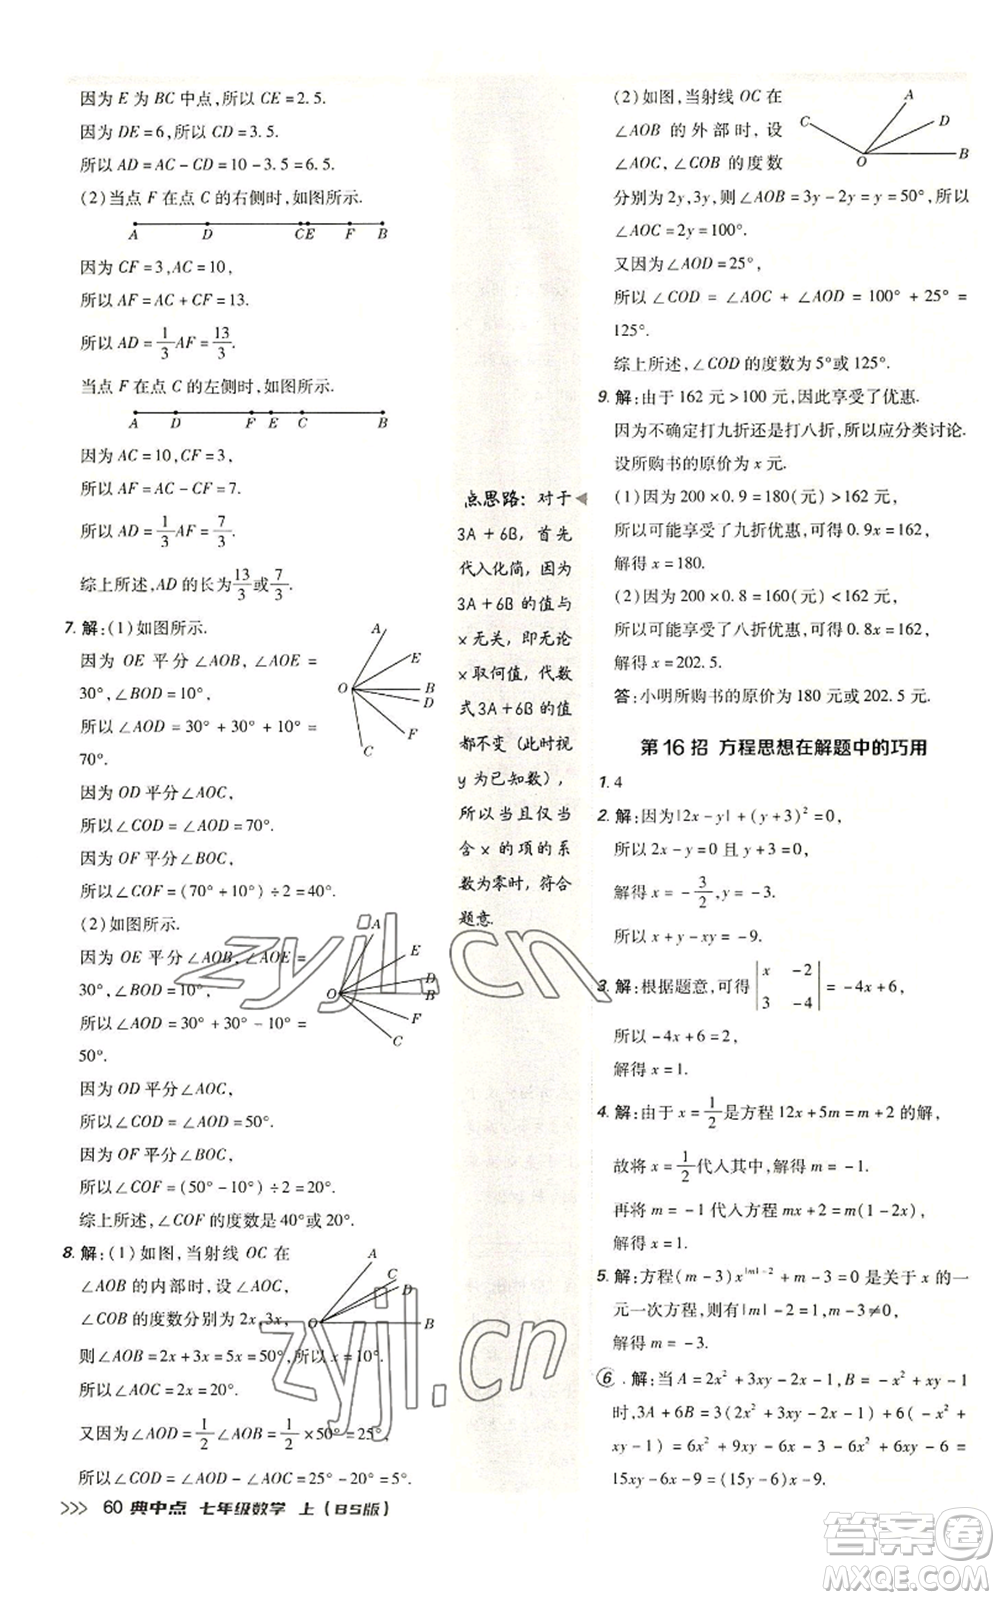 因为 E 为 BC 中点,所以 CE = 2.5.
因为 DE = 6,所以 CD = 3.5.
所以 AD = AC - CD = 10 - 3.5 = 6.5.
(2)当点 F 在点 C 的右侧时,如图所示.
A D CE F B
因为 CF = 3,AC = 10,
所以 AF = AC + CF = 13.
所以 AD = 1/3 AF = 13/3.
当点 F 在点 C 的左侧时,如图所示.
A D F E C B
因为 AC = 10,
所以 AF = AC - CF = 7.
所以 AD = 1/3 AF = 7/3.
综上所述,AD 的长为13/3或7/3.
7. 解:(1)如图所示.
因为 OE 平分∠AOB,∠AOE =
30°,∠BOD = 10°,
所以∠AOD = 30° + 30° + 10° =
70°.
A E O B D F C
因为 OD 平分∠AOC,
所以∠COD = ∠AOD = 70°.
因为 OF 平分∠BOC,
所以∠COF = (70° + 10°) ÷ 2 = 40°.
(2)如图所示.
因为 OE 平分∠AOB,∠AOE =
30°,∠BOD = 10°,
所以∠AOD = 30° + 30° - 10° =
50°.
A E D O B F C
因为 OD 平分∠AOC,
所以∠COD = ∠AOD = 50°.
因为 OF 平分∠BOC,
所以∠COF = (50° - 10°) ÷ 2 = 20°.
综上所述,∠COF 的度数是40°或20°.
8. 解:(1)如图,当射线 OC 在
∠AOB 的内部时,设∠AOC,
∠COB 的度数分别为 2x,3x,
A C D O B
则∠AOB = 2x + 3x = 5x = 50°,所以 x = 10°.
所以∠AOC = 2x = 20°.
又因为∠AOD = 1/2 ∠AOB = 1/2 × 50° = 25°,
所以∠COD = ∠AOD - ∠AOC = 25° - 20° = 5°.
>>> 60 典中点 七年级数学 上(BS版)
点思路: 对于
3A + 6B, 首先
代入化简, 因为
3A + 6B 的值与
x 无关, 即无论
x 取何值, 代数
式 3A + 6B 的值
都不变 (此时视
y 为已知数),
所以当且仅当
含 x 的项的系
数为零时, 符合
题意.
(2)如图,当射线 OC 在
∠AOB 的外部时,设
∠AOC,∠COB 的度数
A C D O B
分别为 2y,3y,则∠AOB = 3y - 2y = y = 50°,所以
∠AOC = 2y = 100°.
又因为∠AOD = 25°,
所以∠COD = ∠AOC + ∠AOD = 100° + 25° =
125°.
综上所述,∠COD 的度数为 5°或 125°.
9. 解:由于 162 元 > 100 元,因此享受了优惠.
因为不确定打九折还是打八折,所以应分类讨论.
设所购书的原价为 x 元.
(1)因为 200 × 0.9 = 180(元) > 162 元,
所以可能享受了九折优惠,可得 0.9x = 162,
解得 x = 180.
(2)因为 200 × 0.8 = 160(元) < 162 元,
所以可能享受了八折优惠,可得 0.8x = 162,
解得 x = 202.5.
答:小明所购书的原价为 180 元或 202.5 元.
第 16 招 方程思想在解题中的巧用
1. 4
2. 解:因为|2x - y| + (y + 3)² = 0,
所以 2x - y = 0 且 y + 3 = 0,
解得 x = -3/2, y = -3.
所以 x + y - xy = -9.
3. 解:根据题意,可得 |x -2; 3 -4| = -4x + 6,
所以 -4x + 6 = 2,
解得 x = 1.
4. 解:由于 x = 1/2 是方程 12x + 5m = m + 2 的解,
故将 x = 1/2 代入其中,解得 m = -1.
再将 m = -1 代入方程 mx + 2 = m(1 - 2x),
解得 x = 1.
5. 解:方程(m - 3)x^(|m|-2) + m - 3 = 0 是关于 x 的一
元一次方程,则有 |m| - 2 = 1,m - 3 ≠ 0,
解得 m = -3.
6. 解:当 A = 2x² + 3xy - 2x - 1,B = -x² + xy - 1
时,3A + 6B = 3(2x² + 3xy - 2x - 1) + 6(-x² +
xy - 1) = 6x² + 9xy - 6x - 3 - 6x² + 6xy - 6 =
15xy - 6x - 9 = (15y - 6)x - 9.
zyjl.cn
zyjl.cn
答案圈
MXQE.COM